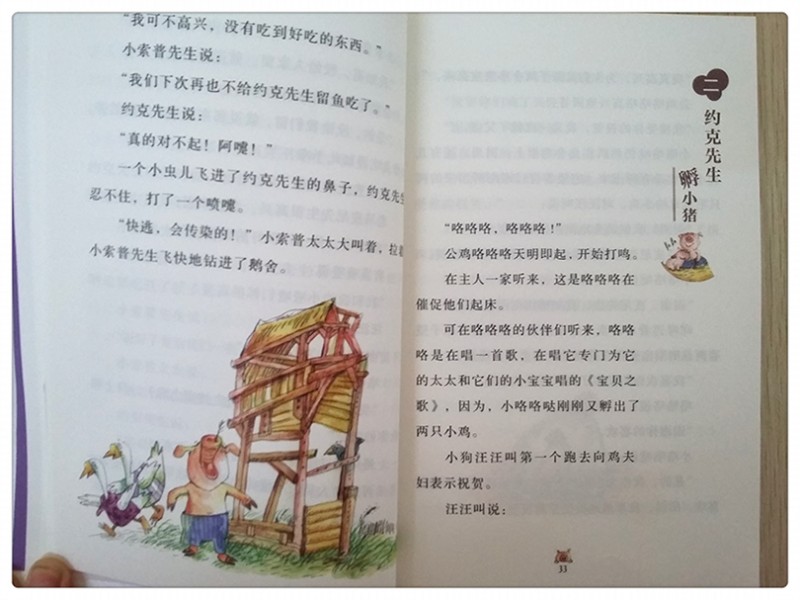 “我可不高兴，没有吃到好吃的东西。”
小索普先生说：
“我们下次再也不给约克先生留鱼吃了。”
约克先生说：
“真的对不起！阿嚏！”
一个小虫儿飞进了约克先生的鼻子，约克先生
忍不住，打了一个喷嚏。
“快逃，会传染的！”小索普太太大叫着，拉着
小索普先生飞快地钻进了鹅舍。
二
约克先生
孵小猪
“咯咯咯，咯咯咯！”
公鸡咯咯咯天明即起，开始打鸣。
在主人一家听来，这是咯咯咯在
催促他们起床。
可在咯咯咯的伙伴们听来，咯咯
咯是在唱一首歌，在唱它专门为它
的太太和它们的小宝宝唱的《宝贝之
歌》，因为，小咯咯哒刚刚又孵出了
两只小鸡。
小狗汪汪叫第一个跑去向鸡夫
妇表示祝贺。
汪汪叫说：
33